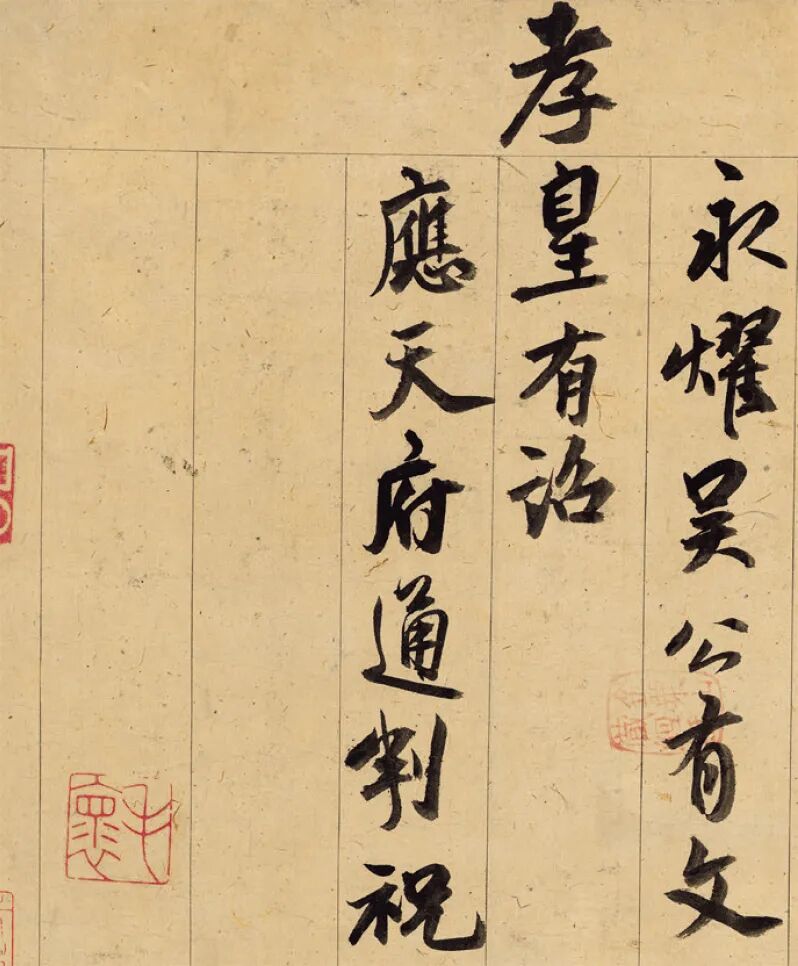 永燿吴公有文
孝皇有詔
應天府通判祝